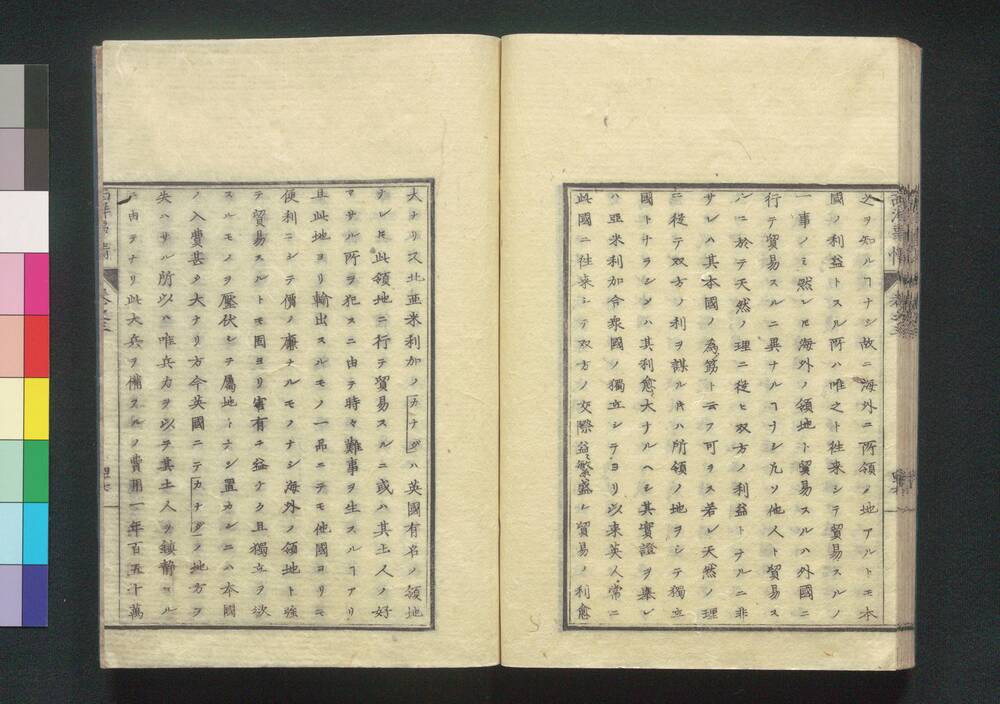 之ヲ知ルヿナシ故ニ海外ニ所領ノ地アルトモ本
國ノ利益トスル所ハ唯之ト往来シテ貿易スルノ
一事ノミ然レ𪜈海外ノ領地ト貿易スルハ外國ニ
行テ貿易スルニ異ナルヿナシ凡ソ他人ト貿易ス
ルニ於テ天然ノ理ニ從ヒ双方ノ利益トナルニ非
サレハ其本國ノ為メ筋ト云フ可ラス若シ天然ノ理
ニ從テ双方ノ利ヲ謀ル𪜈ハ所領ノ地ヲシテ獨立
國トナラシメハ其利愈大ナルヘシ其實證ヲ擧レ
ハ亜米利加合衆國ノ獨立シテヨリ以来英人常ニ
此國ニ往来シテ双方ノ交際益繁盛シ貿易ノ利愈
大ナリス北亜米利加ノカナダハ英國有名ノ領地
ナレ𪜈此領地ニ行テ貿易スルニ或ハ其土人ノ好
マサル所ヲ犯スニ由テ時々難事ヲ生スルヿアリ
且此地ヨリ輸出スルモノ一品ニテモ他國ヨリモ
便利ニシテ價ノ廉ナルモノナシ海外ノ領地ト強
テ貿易スルトモ固ヨリ寡有ニ益ナク且獨立ヲ欲
スルモノヲ壓伏シテ屬地トナシ置カンニハ本國
ノ入費甚タ大ナリ方今英國ニテカナダノ地方ヲ
失ハサル所以ハ唯兵力ヲ以テ其土人ヲ鎮静スル
ニ由テナリ此大兵ヲ備スルノ費用一年百五十萬